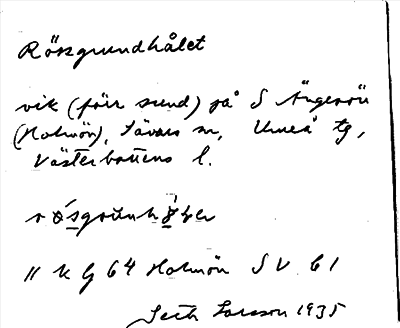 Rösgrundhålet
vik (förr sund) på S Ängesön
(Holmön), Sävars sn, Umeå tg,
Västerbottens l.
11 k G 64 Holmön SV b1
Seth Larsson 1935